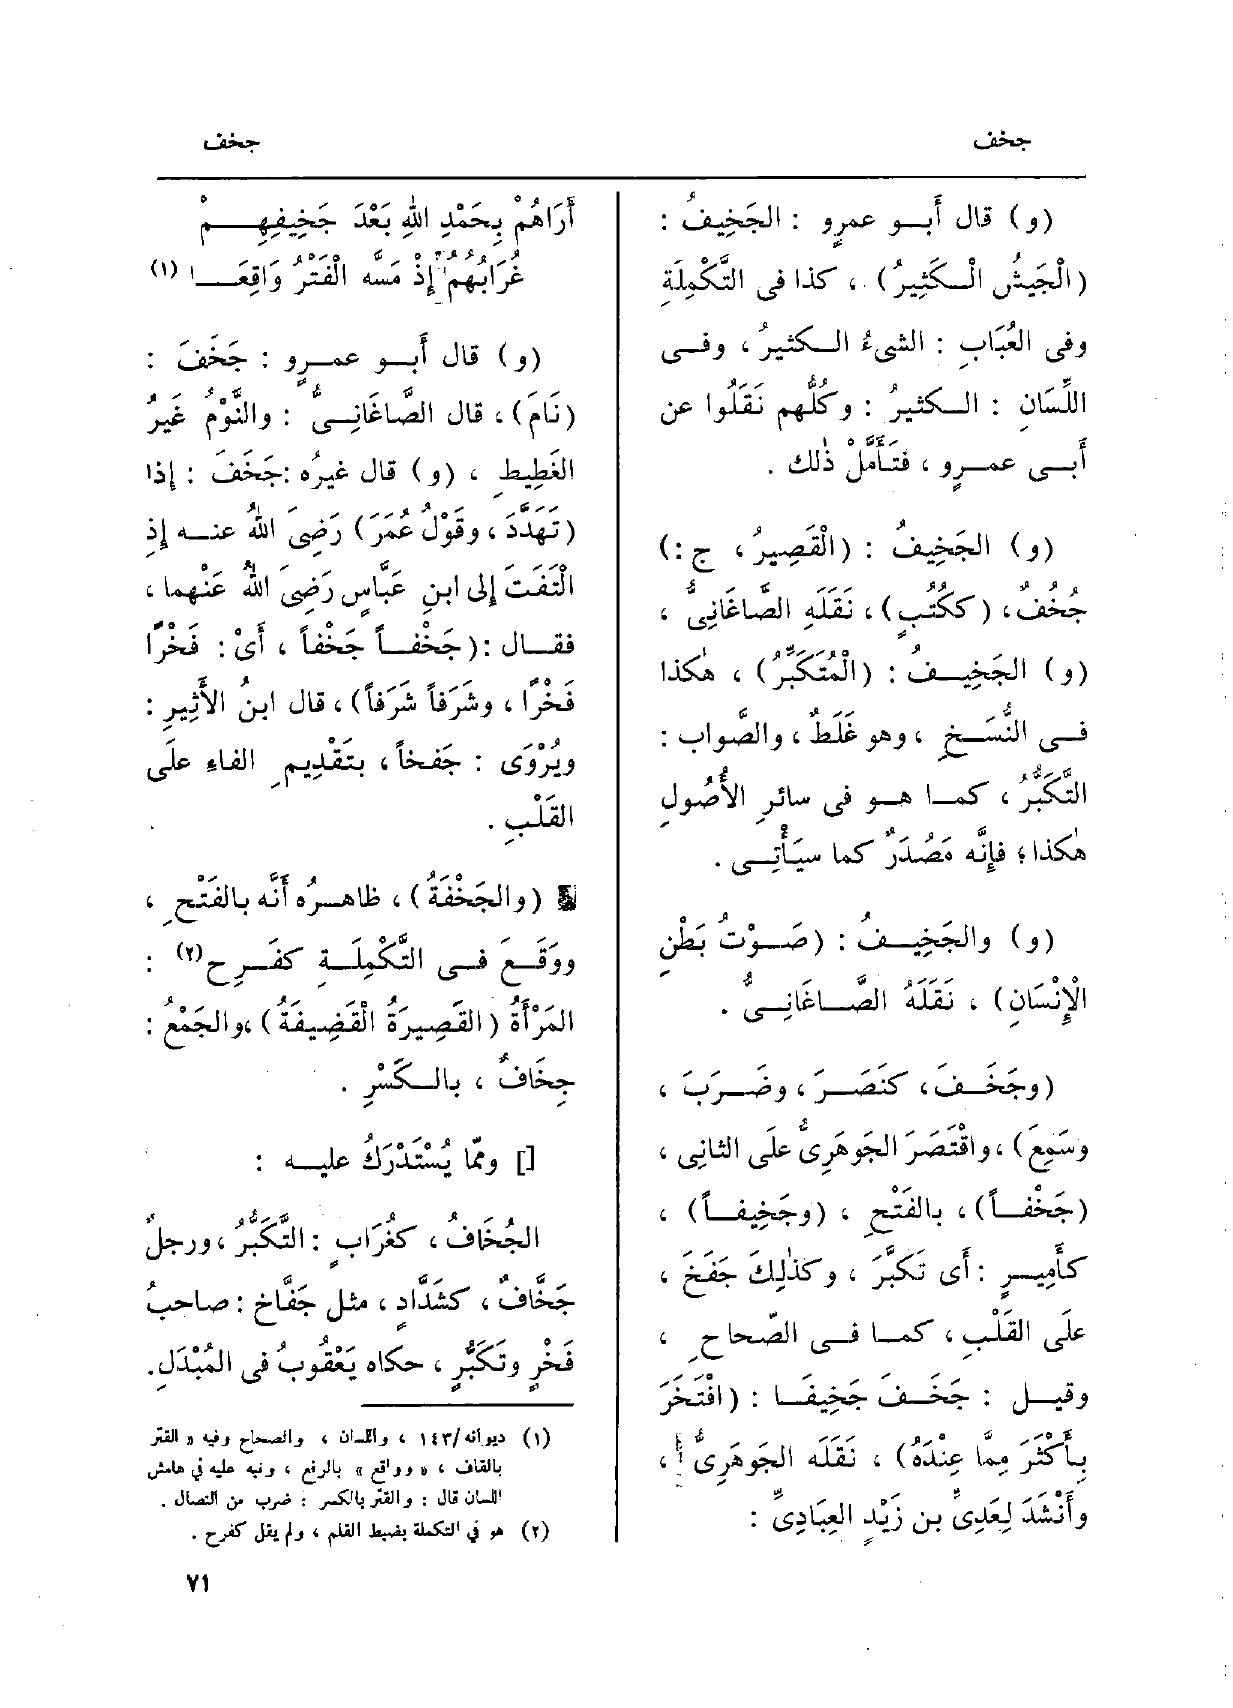 جخف
جخف
(و) قال أَبــو عمرٍو : الجَخِيفُ :
(الْجَيْشُ الْـكَثِيرُ) ، كذا فى التَّكْمِلَةِ
وفى العُبَابِ : الشىءُ الـكثيرُ ، وفــى
اللِّسَانِ : الـكثيرُ : وكُلُّهم نَقَلُوا عن
أَبــى عمــرٍو ، فتَأَمَّلْ ذٰلك .
(و) الجَخِيفُ : (الْقَصِيرُ ، ج :)
جُخُفٌ ، (ككُتُبٍ) ، نَقَلَهِ الصَّاغَانِىُّ ،
(و) الجَخِيــفُ : (الْمُتَكَبِّرُ) ، هٰكذا
فــى النُّسَــخِ ، وهو غَلَطٌ ، والصَّواب :
التَّكَبُّرُ ، كمــا هــو فى سائرِ الأُصُولِ
هٰكذا ؛ فإِنَّه مَصْدَرٌ كما سيَأْتِــى .
(و) والجَخِيــفُ : (صَــوْتُ بَطْنِ
الْإِنْسَانِ) ، نَقَلَهُ الصَّــاغَانِــىُّ .
(وجَخَــفَ ، كنَصَــرَ ، وضَــرَبَ ،
وسَمِعَ) ، واقْتَصَرَ الجَوهَرِىُّ علَى الثانِى ،
(جَخْفــاً) ، بالفَتْحِ ، (وجَخِيفــاً) ،
كأَمِيــرٍ : أَى تَكبَّرَ ، وكذٰلِكَ جَفَخَ ،
علَى القَلْبِ ، كمــا فــى الصّحاحِ ،
وقيــل : جَخَــفَ جَخِيفَــا : (افْتَخَرَ
بِأَكْثَرَ مِمَّا عِنْدَهُ) ، نَقَلَه الجَوهَرِىُّ ،
وأَنْشَدَ لِعَدِىِّ بن زَيْدٍ العِبَادِىِّ :
أَرَاهُمْ بِحَمْدِ اللهِ بَعْدَ جَخِيفِهِــــمْ
غُرَابُهُمُ إِذْ مَسَّه الْفَتْرُ وَاقِعَـــا (١)
(و) قال أَبــو عمــرٍو : جَخَفَ :
(نَامَ) ، قال الصَّاغَانِــىُّ : والنَّوْمُ غَيْرُ
الغَطِيطِ ، (و) قال غيرُه : جَخَفَ : إِذا
(تَهَدَّدَ ، وقَوْلُ عُمَرَ) رَضِىَ اللهُ عنــه إِذِ
الْتَفَتَ إِلى ابنِ عَبَّاسٍ رَضِىَ اللهُ عَنْهما ،
فقــال : (جَخْفــاً جَخْفاً ، أَىْ : فَخْرًا
فَخْرًا ، وشَرَفاً شَرَفاً) ، قال ابنُ الأَثِيرِ :
ويُرْوَى : جَفخاً ، بتَقْدِيمِ الفاءِ علَى
القَلْبِ .
(والجَخْفَةُ) ، ظاهــرُه أَنَّه بالفَتْحِ ،
ووَقَــعَ فــى التَّكْمِلَــةِ كفَــرِح(٢) :
المَرْأَةُ (القَصِيرَةُ الْقَضِيفَةُ) ، والجَمْعُ :
جِخَافٌ ، بالــكَسْرِ .
[] وممّا يُسْتَدْرَكُ عليــه :
الجُخَافُ ، كغُرَابٍ : التَّكَبُّرُ ، ورجلٌ
جَخَّافٌ ، كشَدَّادٍ ، مثل جَفَّاخ : صاحبُ
فَخْرٍ وتَكَبُّرٍ ، حكاه يَعْقُوبُ فى المُبْدَلِ .
(١) ديوانه/١٤٣ ، واللسان ، والصحاح وفيه « القتر
بالقاف ، « وواقع » بالرفع ، ونبه عليه في هامش
اللسان قال : والقتر بالكسر : ضرب من النصال .
(٢) هو في التكملة بضبط القلم ، ولم يقل كفرح .
٧١